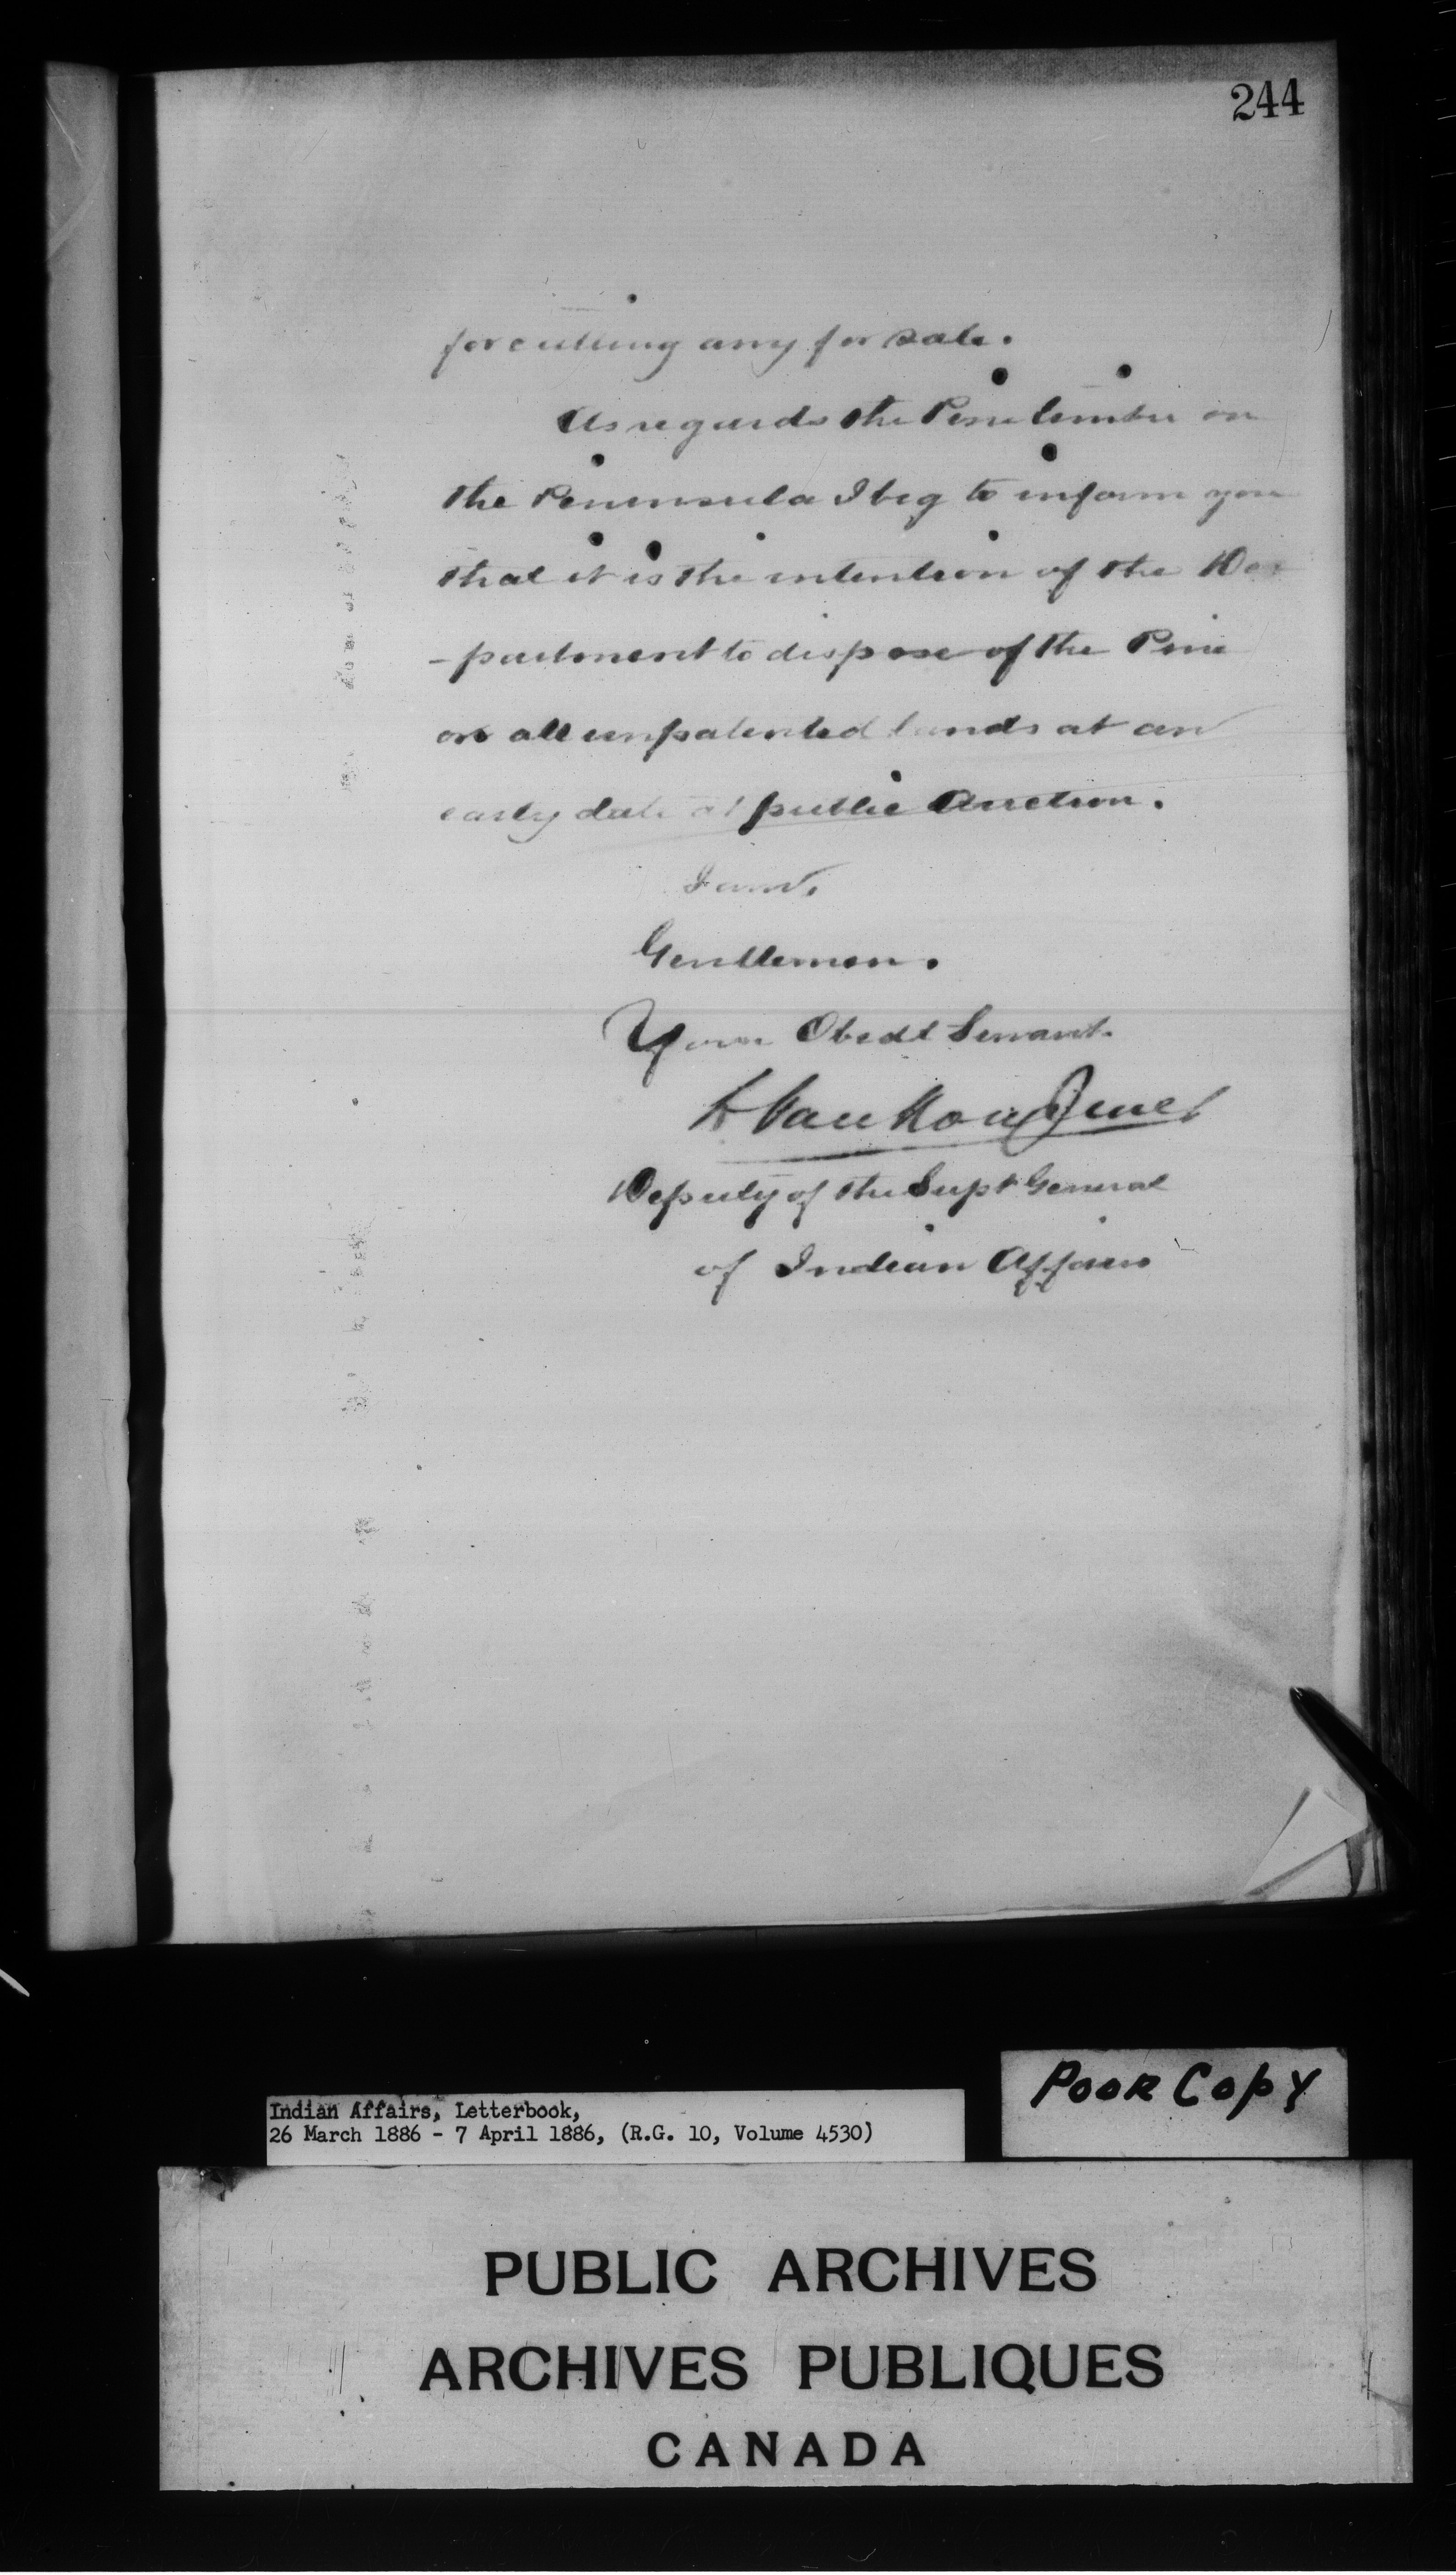 244
for cutting any for sale.
As regards the Pine timber on
the Peninsula I beg to inform you
that it is the intention of the De-
-partment to dispose of the Pine
on all unpatented lands at an
early date at public Auction.
I am,
Gentlemen.
Your Obedt Servant.
L VanKoughnet
Deputy of the Supt General
of Indian Affairs
Poor Copy
Indian Affairs, Letterbook,
26 March 1886 - 7 April 1886, (R.G. 10, Volume 4530)
PUBLIC ARCHIVES
ARCHIVES PUBLIQUES
CANADA